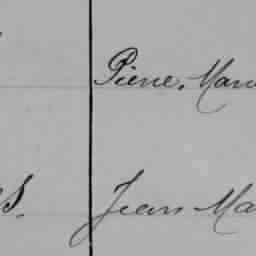 Pierre, Mar
S. Jean Ma